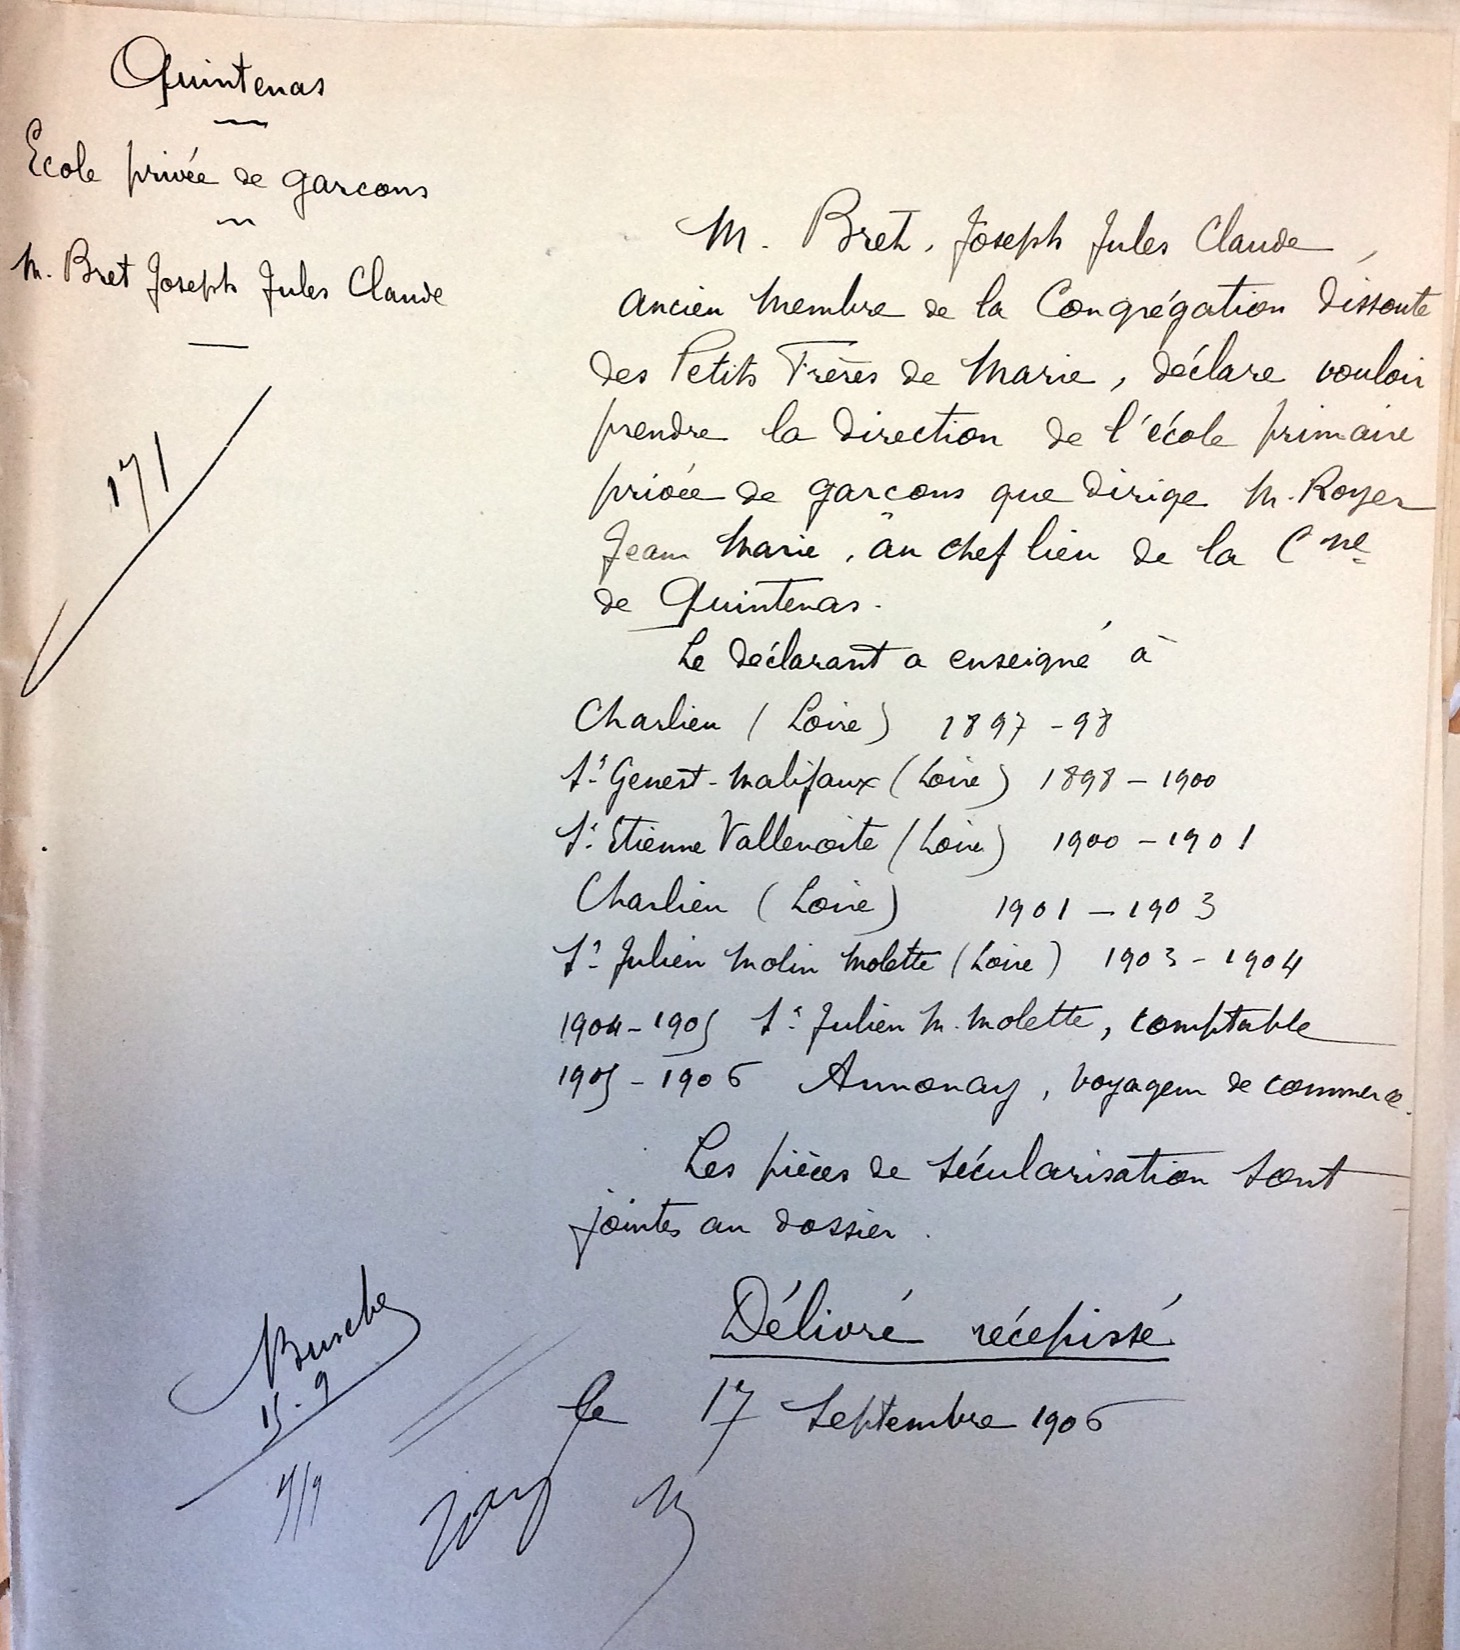 Quintenas
Ecole privée de garcons
M. Bret Joseph Jules Claude
171
M. Bret, Joseph Jules Claude,
ancien membre de la Congrégation dissoute
des Petits Frères de Marie, déclare vouloir
prendre la direction de l'école primaire
privée de garcons que dirige M. Royer
Jean Marie, au chef lieu de la Cne
de Quintenas.
Le déclarant a enseigné à
Charlieu (Loire) 1897-98
St Genest-Malifaux (Loire) 1898-1900
St Etienne Vallenoite (Loire) 1900-1901
Charlieu (Loire) 1901-1903
St Julien Molin Molette (Loire) 1903-1904
1904-1905 St Julien M. Molette, comptable
1905-1906 Annonay, voyageur de commerce.
Les pièces de sécularisation sont
jointes au dossier.
Délivré récépissé
le 17 Septembre 1906
15-9